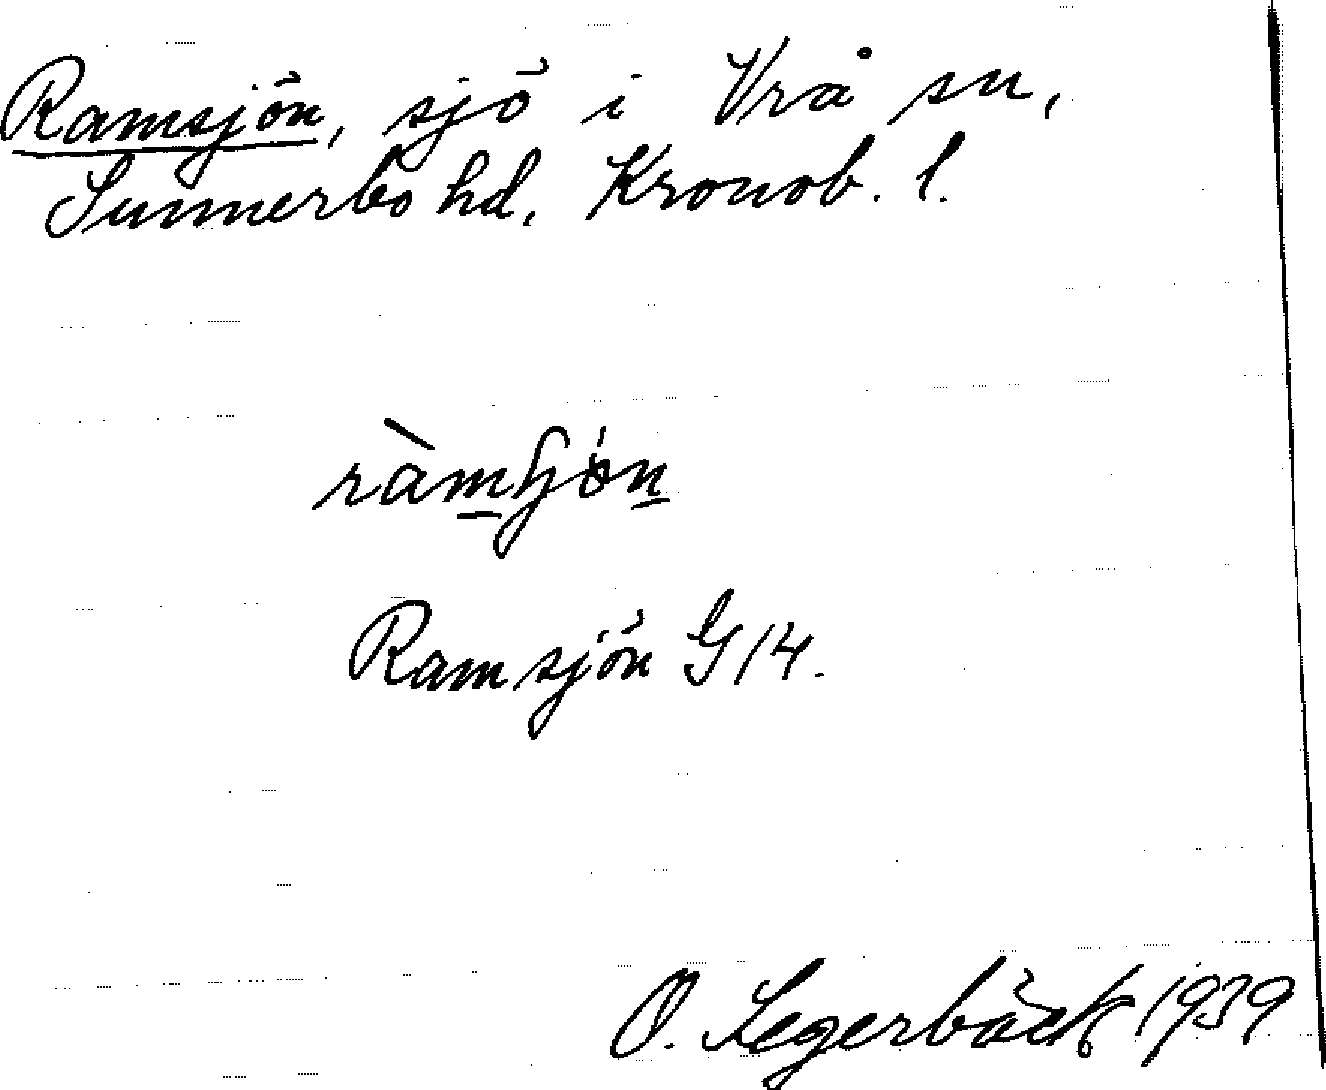 Ramsjön, sjö i Vrå sn,
Sunnerbo hd, Kronob. l.
Ramsjön G14.
O. Segerbäck 1939